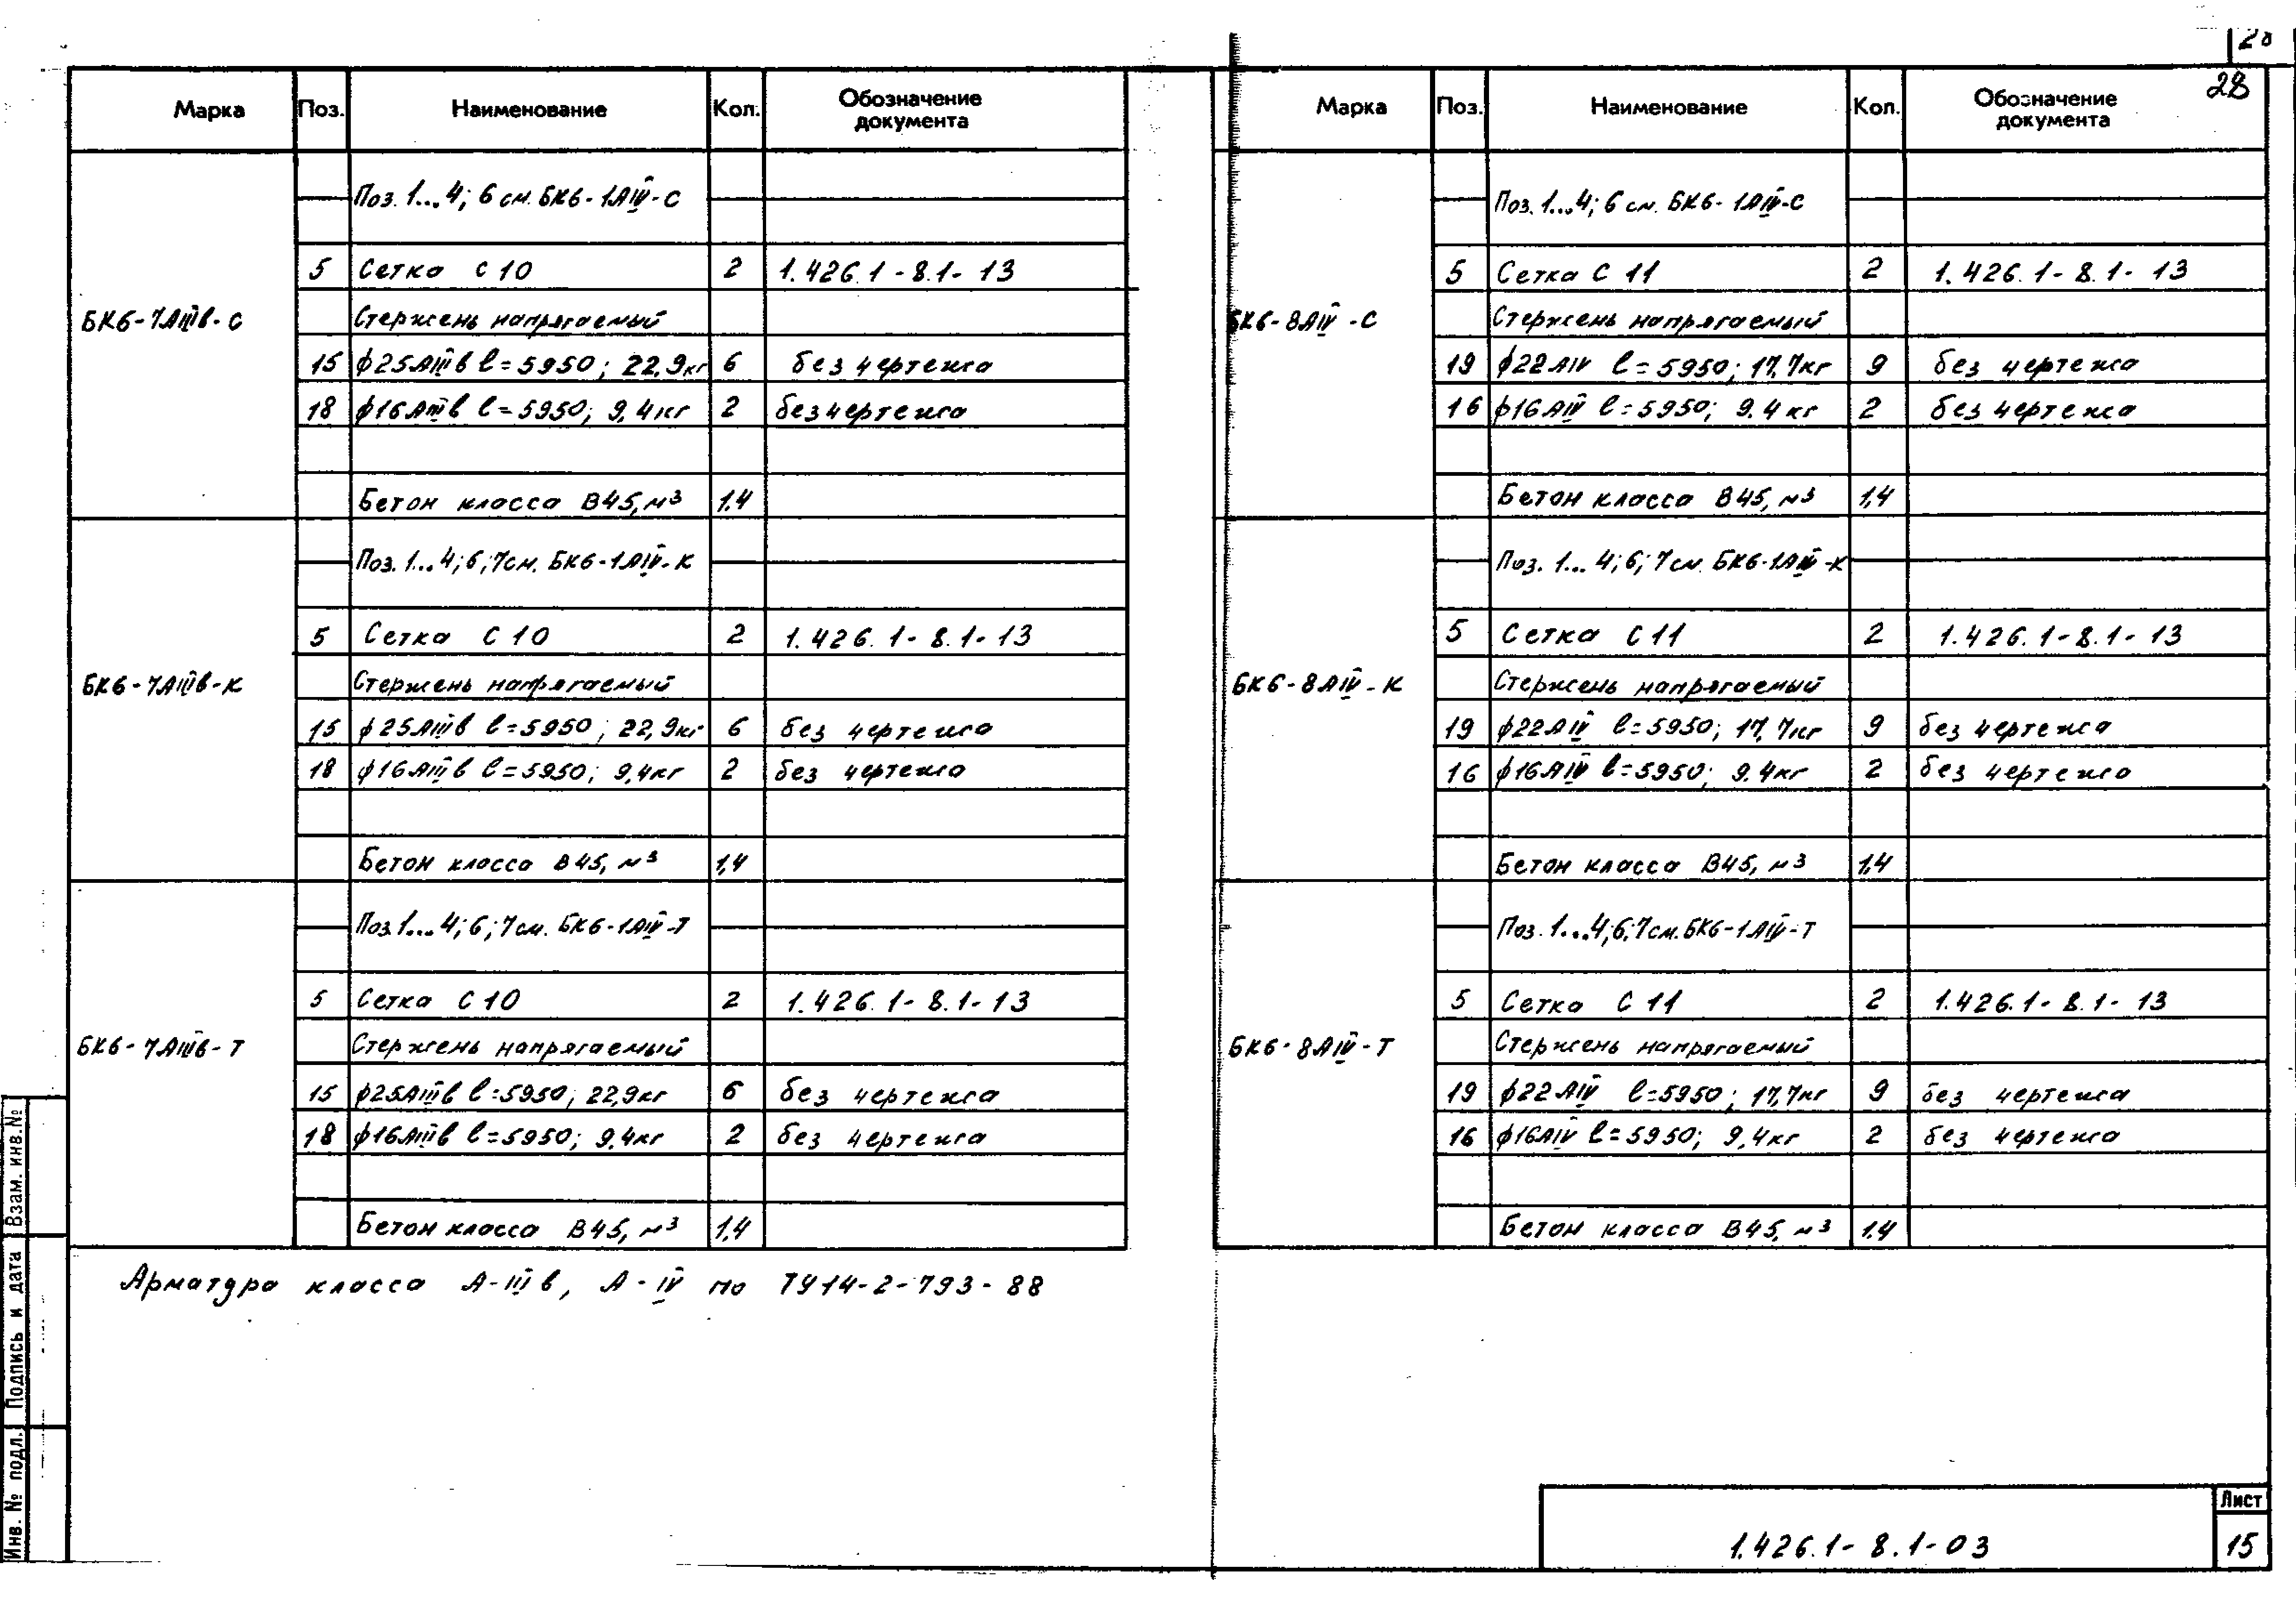 28
28
Марка Поз. Наименование Кол. Обозначение документа
Поз. 1...4; 6 см. БК6-1АIV-С
5 Сетка С10 2 1.426.1-8.1-13
БК6-7АIIIв-С
Стержень напрягаемый
15 ф25АIIIв l=5950; 22.9кг 6 без чертежа
18 ф16АIIIв l=5950; 9.4кг 2 без чертежа
Бетон класса В45, м³ 1.4
Поз. 1...4; 6; 7 см. БК6-1АIV-К
5 Сетка С10 2 1.426.1-8.1-13
БК6-7АIIIв-К
Стержень напрягаемый
15 ф25АIIIв l=5950; 22,9кг 6 без чертежа
18 ф16АIIIв l=5950; 9,4кг 2 без чертежа
Бетон класса В45, м³ 1,4
Поз. 1...4; 6; 7 см. БК6-1АIV-Т
5 Сетка С10 2 1.426.1-8.1-13
БК6-7АIIIв-Т
Стержень напрягаемый
15 ф25АIIIв l=5950; 22,9кг 6 без чертежа
18 ф16АIIIв l=5950; 9,4кг 2 без чертежа
Бетон класса В45, м³ 1,4
Арматура класса А-IIIв, А-IV по ТУ14-2-793-88
Марка Поз. Наименование Кол. Обозначение документа
Поз. 1...4; 6 см. БК6-1АIV-С
5 Сетка С11 2 1.426.1-8.1-13
БК6-8АIV-С
Стержень напрягаемый
19 ф22АIV l=5950; 17,7кг 9 без чертежа
16 ф16АIV l=5950; 9.4кг 2 без чертежа
Бетон класса В45, м³ 1,4
Поз. 1...4; 6; 7 см. БК6-1АIV-К
5 Сетка С11 2 1.426.1-8.1-13
БК6-8АIV-К
Стержень напрягаемый
19 ф22АIV l=5950; 17,7кг 9 без чертежа
16 ф16АIV l=5950; 9.4кг 2 без чертежа
Бетон класса В45, м³ 1,4
Поз. 1...4; 6; 7 см. БК6-1АIV-Т
5 Сетка С11 2 1.426.1-8.1-13
БК6-8АIV-Т
Стержень напрягаемый
19 ф22АIV l=5950; 17,7кг 9 без чертежа
16 ф16АIV l=5950; 9,4кг 2 без чертежа
Бетон класса В45, м³ 1.4
Взам. инв.№
Подпись и дата
Инв. № подл.
1.426.1-8.1-03
Лист
15